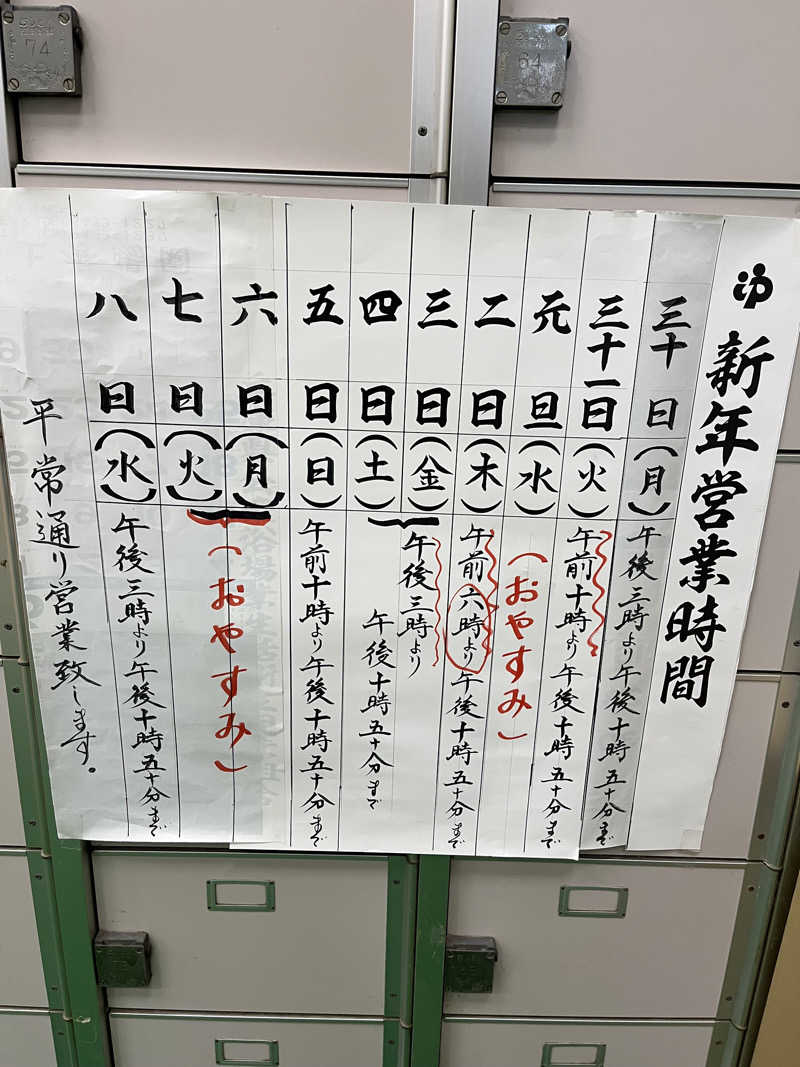 ゆ 新年営業時間
三十日(月)午後三時より午後十時五十分まで
三十一日(火)午前十時より午後十時五十分まで
元旦(水)(おやすみ)
二日(木)午前六時より午後十時五十分まで
三日(金)午後三時より
四日(土)午後十時五十分まで
五日(日)午前十時より午後十時五十分まで
六日(月)
七日(火)(おやすみ)
八日(水)午後三時より午後十時五十分まで
平常通り営業致します。
74
64